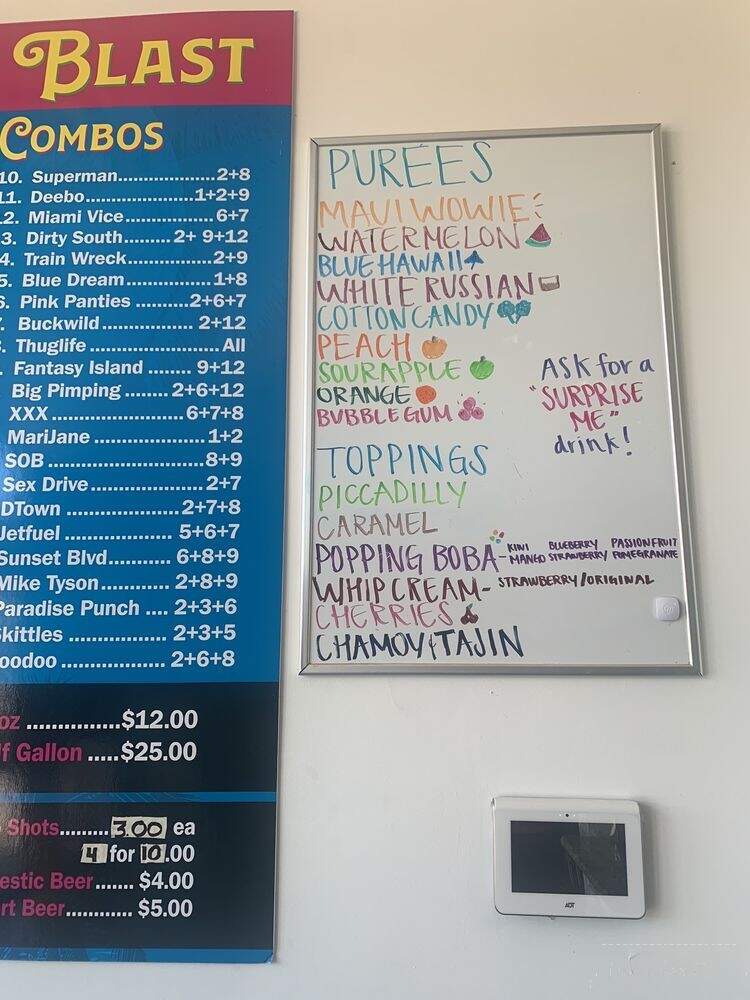 BLAST
COMBOS
10. Superman...................2+8
11. Deebo......................1+2+9
2. Miami Vice..................6+7
3. Dirty South......... 2+ 9+12
4. Train Wreck.................2+9
5. Blue Dream................1+8
6. Pink Panties ..........2+6+7
. Buckwild................... 2+12
. Thuglife.......................... All
. Fantasy Island .......... 9+12
Big Pimping ..........2+6+12
XXX .........................6+7+8
MariJane .......................1+2
SOB ..............................8+9
Sex Drive ......................2+7
DTown ....................... 2+7+8
Jetfuel ....................... 5+6+7
Sunset Blvd............. 6+8+9
Mike Tyson.............. 2+8+9
Paradise Punch .... 2+3+6
kittles ..................... 2+3+5
oodoo ................... 2+6+8
oz ...............$12.00
lf Gallon .....$25.00
Shots.........3.00 ea
4 for 10.00
estic Beer....... $4.00
rt Beer............ $5.00
PURÉES
MAUI WOWIE
WATERMELON
BLUE HAWAII
WHITE RUSSIAN
COTTON CANDY
PEACH
SOUR APPLE
ORANGE
BUBBLE GUM
ASK for a
"SURPRISE
ME"
drink!
TOPPINGS
PICCADILLY
CARAMEL
POPPING BOBA- KIWI BLUEBERRY PASSIONFRUIT
MANGO STRAWBERRY POMEGRANATE
WHIP CREAM- STRAWBERRY/ORIGINAL
CHERRIES
CHAMOY & TAJIN
ADT